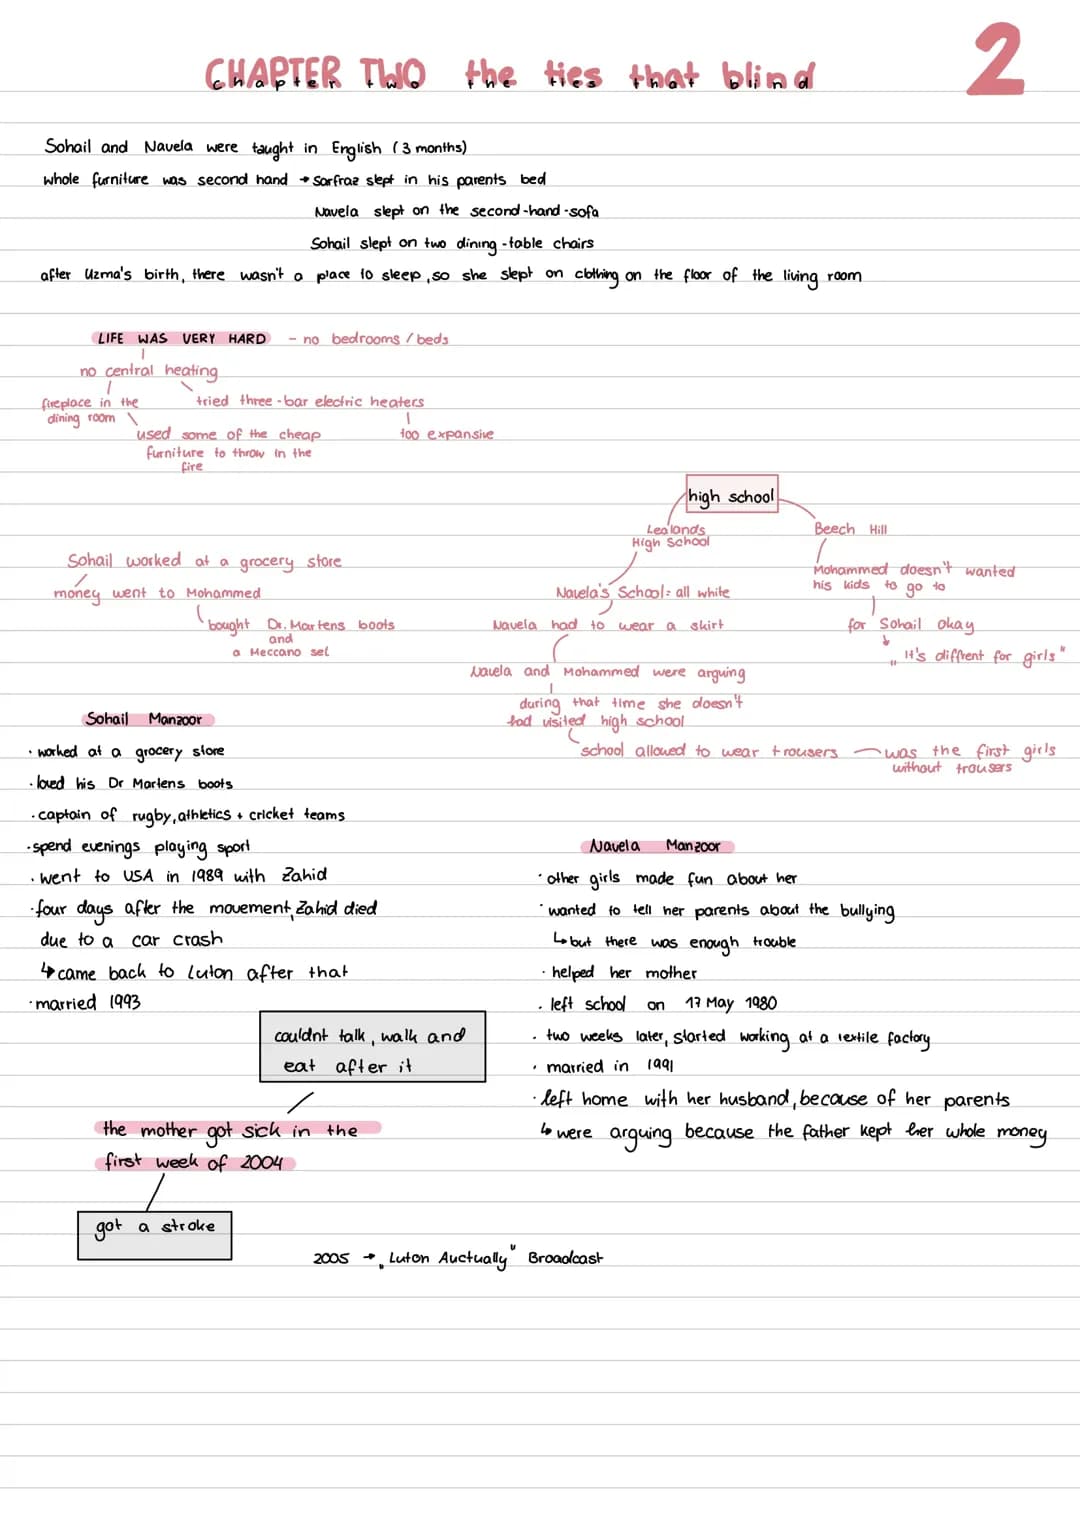 2
CHAPTER TWO the ties that blind
chapter two the ties that blind
Sohail and Navela were taught in English (3 months)
whole furniture was second hand → Sarfraz slept in his parents bed
Navela slept on the second-hand-sofa
Sohail slept on two dining-table chairs
after Uzma's birth, there wasn't a place to sleep, so she slept on clothing on the floor of the living room
LIFE WAS VERY HARD - no bedrooms / beds
no central heating
fireplace in the
dining room
tried three-bar electric heaters
used some of the cheap
furniture to throw in the
fire
too expansive
high school
Lealands
High School
Beech Hill
Mohammed doesn't wanted
his kids to go to
for Sohail okay
"It's diffrent for girls"
Navela's School: all white
Navela had to wear a skirt
Navela and Mohammed were arguing
during that time she doesn't
had visited high school
school allowed to wear trousers
was the first girls
without trousers
Sohail worked at a grocery store
money went to Mohammed
bought Dr. Martens boots
and
a Meccano set
Sohail Manzoor
· worked at a grocery store
· loved his Dr Martens boots
· captain of rugby, athletics + cricket teams
· spend evenings playing sport
· went to USA in 1989 with Zahid
· four days after the movement, Zahid died
due to a car crash
↳ came back to Luton after that
· married 1993
Navela Manzoor
· other girls made fun about her
· wanted to tell her parents about the bullying
↳ but there was enough trouble
· helped her mother
· left school on 17 May 1980
· two weeks later, started working at a textile factory
· married in 1991
· left home with her husband, because of her parents
↳ were arguing because the father kept her whole money
couldnt talk, walk and
eat after it
the mother got sick in the
first week of 2004
got a stroke
2005 → „Luton Auctually" Broadcast